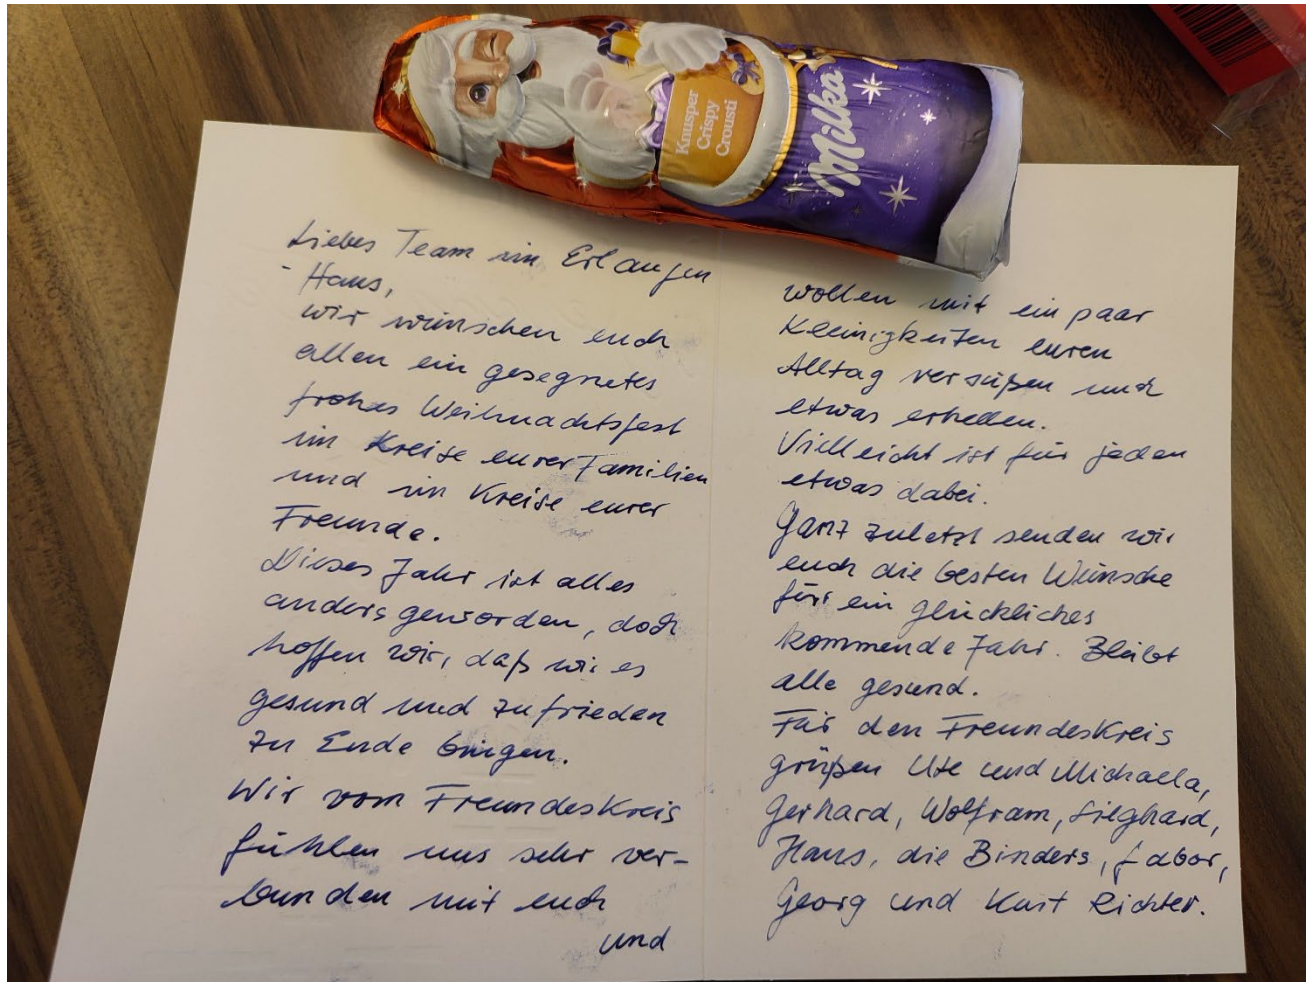 Knusper
Crispy
Crousti
Milka
Liebes Team im Erlangen
-Haus,
wir wünschen euch
allen ein gesegnetes
frohes Weihnachtsfest
im Kreise eurer Familien
und im Kreise eurer
Freunde.
Dieses Jahr ist alles
anders geworden, doch
hoffen wir, daß wir es
gesund und zufrieden
zu Ende bringen.
Wir vom Freundeskreis
fühlen uns sehr ver-
bunden mit euch
und
wollen mit ein paar
Kleinigkeiten euren
Alltag versüßen und
etwas erhellen.
Vielleicht ist für jeden
etwas dabei.
Ganz zuletzt senden wir
euch die besten Wünsche
für ein glückliches
kommende Jahr. Bleibt
alle gesund.
Für den Freundeskreis
grüßen Ute und Michaela,
Gerhard, Wolfram, Sieghard,
Hans, die Binders,
Georg und Kurt Richter.